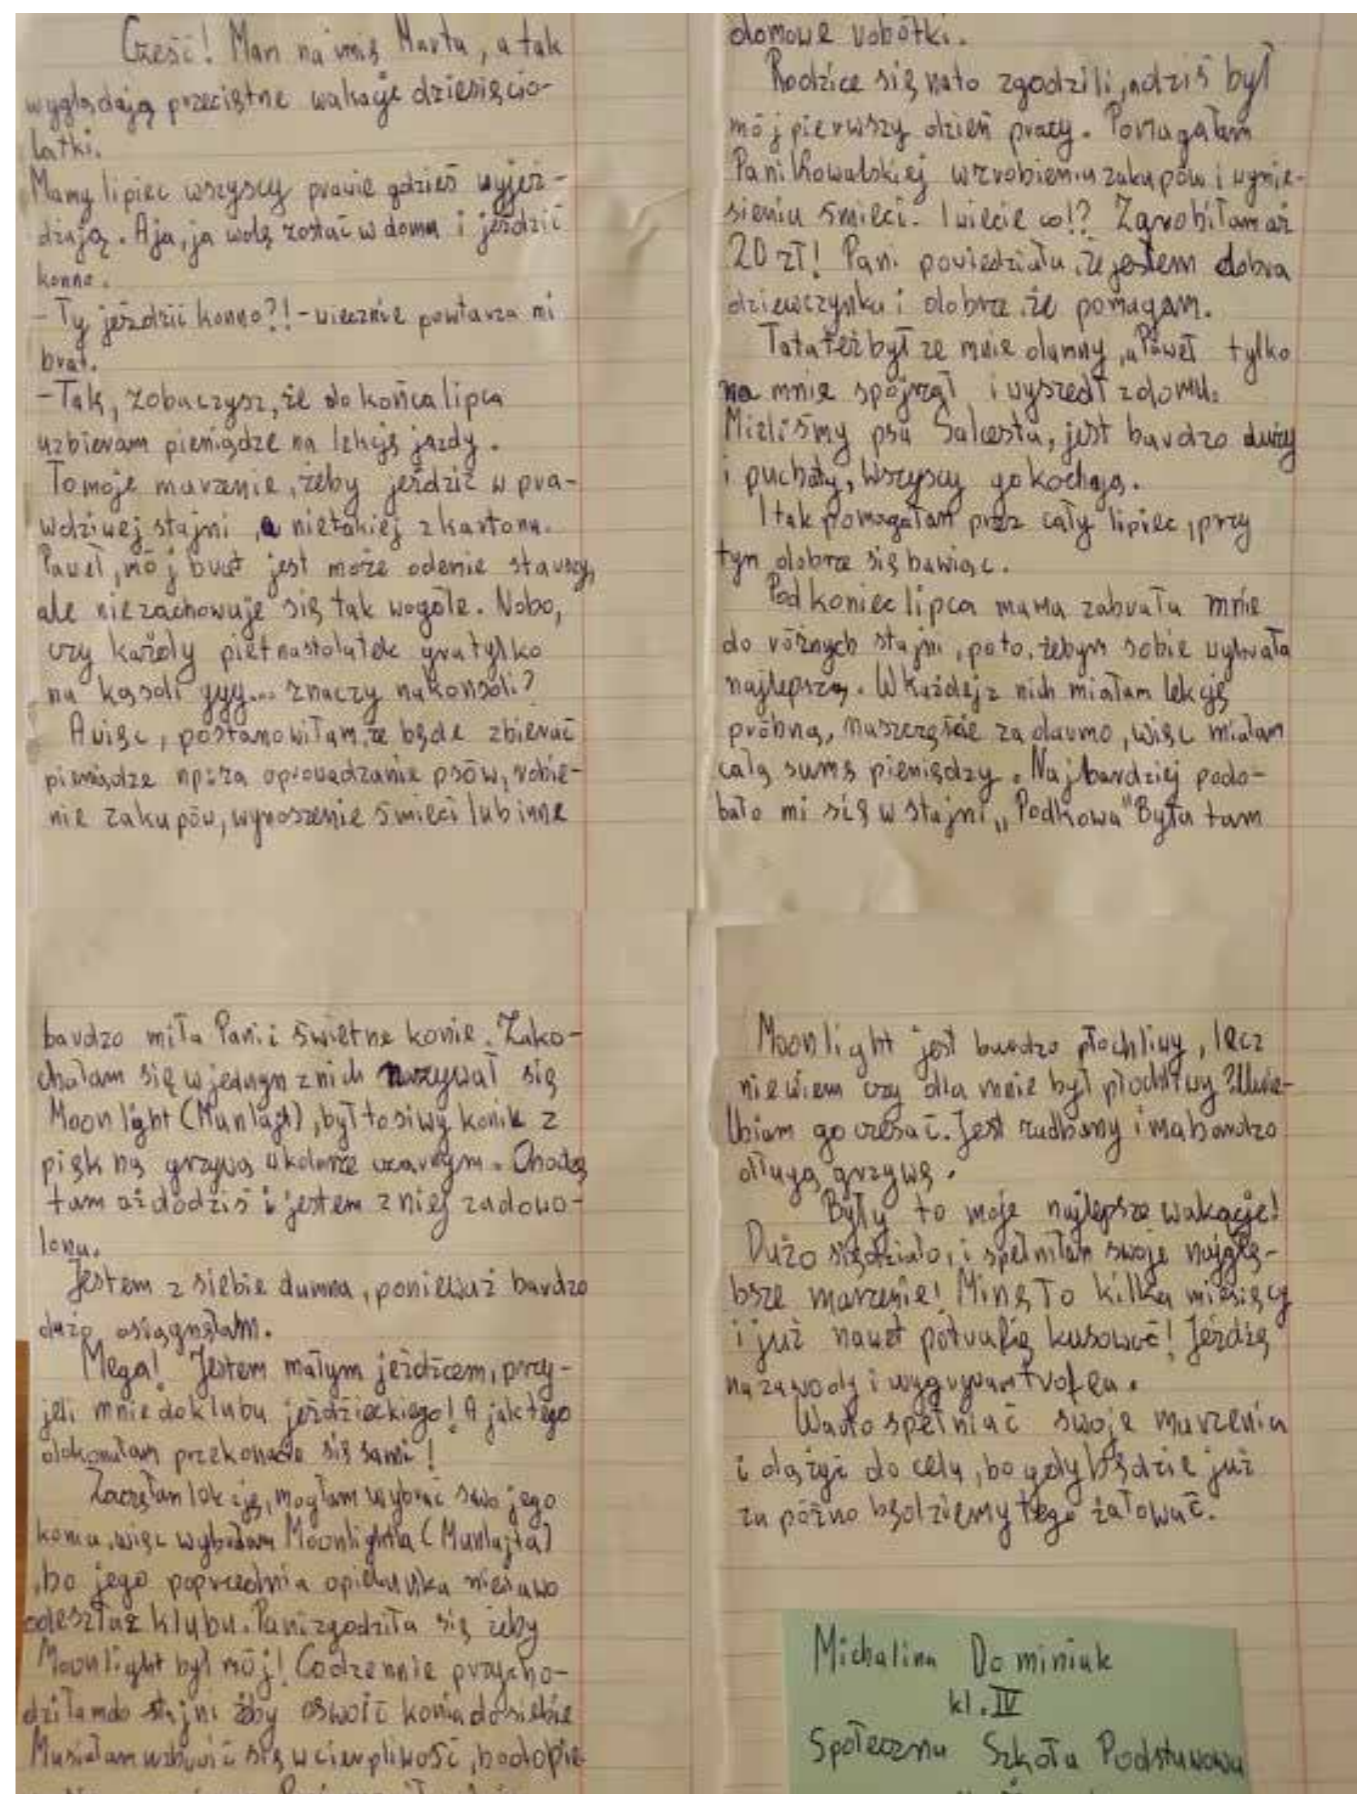 Cześć! Mam na imię Marta, a tak
wyglądają przeciętne wakacje dziesięcio-
latki.
Mamy lipiec wszyscy prawie gdzieś wyjeż-
dzają. A ja, ja wolę zostać w domu i jeździć
konno.
- Ty jeździć konno?! - wiecznie powtarza mi
brat.
- Tak, zobaczysz, że do końca lipca
uzbieram pieniądze na lekcję jazdy.
To moje marzenie, żeby jeździć w pra-
wdziwej stajni, a nie takiej z kartonu.
Paweł, mój brat jest może odemie starszy,
ale nie zachowuje się tak wogóle. No bo,
czy każdy pietnastolatek gra tylko
na kąsoli yyy... znaczy na konsoli?
A więc, postanowiłam, że będe zbierać
pieniądze np: za oprowadzanie psów, robie-
nie zakupów, wynoszenie śmieci lub inne
domowe robótki.
Rodzice się na to zgodzili, a dziś był
mój pierwszy dzień pracy. Pomagałam
Pani Kowalskiej w zrobieniu zakupów i wynie-
sieniu śmieci. I wiecie co!? Zarobiłam aż
20 zł! Pani powiedziała, że jestem dobra
dziewczynka i dobrze, że pomagam.
Tata też był ze mnie dumny, a Paweł tylko
na mnie spojrzał i wyszedł z domu.
Mieliśmy psa Salcesta, jest bardzo duży
i puchaty, wszyscy go kochają.
I tak pomagałam przez cały lipiec, przy
tym dobrze się bawiąc.
Pod koniec lipca mama zabrała mnie
do różnych stajni, po to, żebym sobie wybrała
najlepszą. W każdej z nich miałam lekcję
próbną, na szczęście za darmo, więc miałam
całą sumę pieniędzy. Najbardziej podo-
bało mi się w stajni „Podkowa" Była tam
bardzo miła Pani i świetne konie. Zako-
chałam się w jednym z nich nazywał się
Moonlight (Munlajt), był to siwy konik z
piękną grzywą w kolorze czarnym. Chodzę
tam aż do dziś i jestem z niej zadowo-
lona.
Jestem z siebie dumna, ponieważ bardzo
dużo osiągnęłam.
Mega! Jestem małym jeźdźcem, przy-
jeli mnie do klubu jeździeckiego! A jak tego
dokonałam przekonacie się sami!
Zaczęłam lekcję, mogłam wybrać swojego
konia, więc wybrałam Moonlighta (Munlajta)
, bo jego poprzednia opiekunka niedawo
odeszła z klubu. Pani zgodziła się żeby
Moonlight był mój! Codzennie przycho-
dziłam do stajni żby oswoić konia do siebie
Musiałam uzbroić się w cierpliwość, bo dopie-
Moonlight jest bardzo płochliwy, lecz
nie wiem czy dla mnie był płochliwy? Uwie-
lbiam go czesać. Jest zadbany i ma bardzo
długą grzywę.
Były to moje najlepsze wakacje!
Dużo się działo, i spełniłam swoje najgłę-
bsze marzenie! Minęło kilka miesięcy
i już nawet potrafię kusować! Jeżdżę
na zawody i wygrywam trofea.
Warto spełniać swoje marzenia
i dążyć do celu, bo gdy będzie już
za późno będziemy tego żałować.
Michalina Dominiak
kl. IV
Społeczna Szkoła Podstawowa